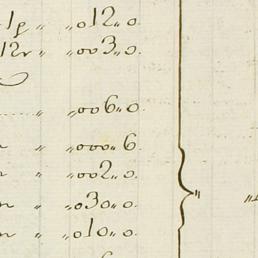 1p „ „012„0.
12r „ „003„0.
„ „006„0
„ „000„6.
„ „002„0.
„ „030„0.
„ „010„0.